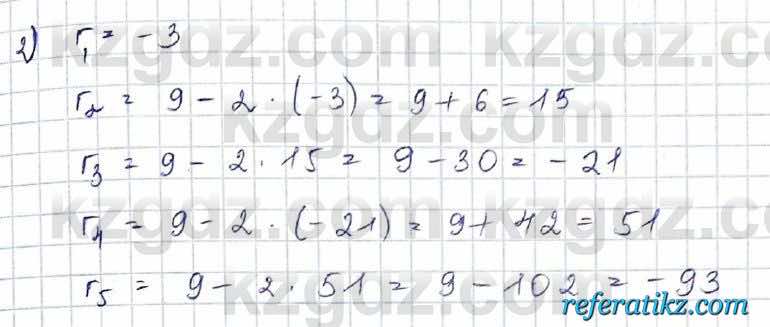 kzgdz.com kzgdz.com
2) r₁ = -3
r₂ = 9 - 2 · (-3) = 9 + 6 = 15
kzgdz.com
r₃ = 9 - 2 · 15 = 9 - 30 = -21
kzgdz.com kzgdz.com
r₄ = 9 - 2 · (-21) = 9 + 42 = 51
r₅ = 9 - 2 · 51 = 9 - 102 = -93
kzgdz.com
referatikz.com